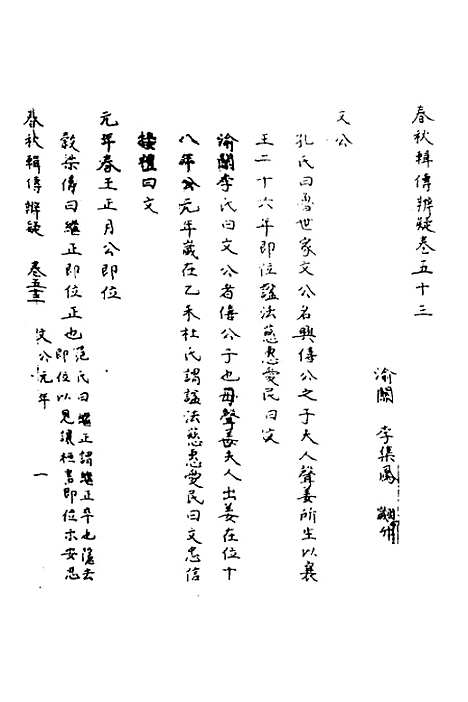 春秋輯傳辨疑卷五十三
渝關　李集鳳　翽升
文公
孔氏曰魯世家文公名興僖公之子夫人聲姜所生以襄
王二十六年即位諡法慈惠愛民曰文
渝關李氏曰文公者僖公子也母聲姜夫人出姜在位十
八年公元年歲在乙未杜氏謂諡法慈惠愛民曰文忠信
接禮曰文
元年春王正月公即位
穀梁傳曰繼正即位正也
范氏曰繼正謂繼正卒也隱去
即位以見讓桓書即位示安忍
春秋輯傳辨疑　卷五十三　文公元年　一